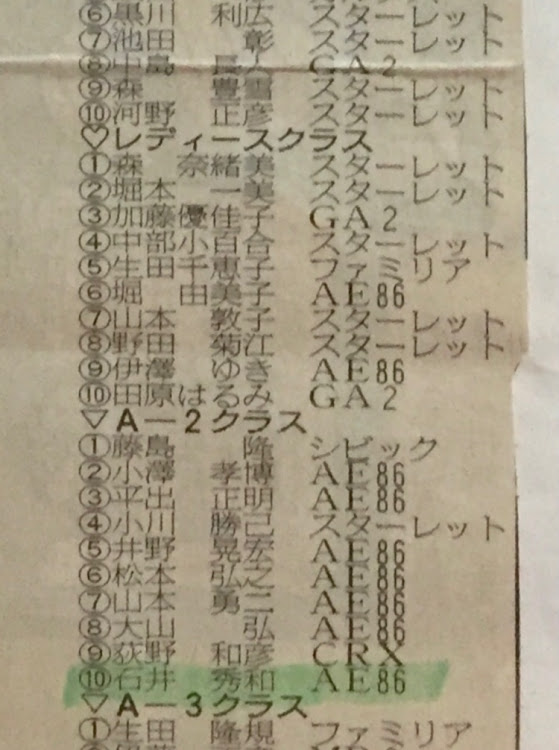 ⑥黒川 利広 スターレット
⑦池田 彰 スターレット
⑧中島 長人 GA2
⑨森 豊雪 スターレット
⑩河野 正彦 スターレット
♡レディースクラス
①森 奈緒美 スターレット
②堀本 一美 スターレット
③加藤優佳子 GA2
④中部小百合 スターレット
⑤生田千恵子 ファミリア
⑥堀 由美子 AE86
⑦山本 敦子 スターレット
⑧野田 菊江 スターレット
⑨伊澤 ゆき AE86
⑩田原はるみ GA2
▽A―2クラス
①藤島 隆 シビック
②小澤 孝博 AE86
③平出 正明 AE86
④小川 勝己 スターレット
⑤井野 晃宏 AE86
⑥松本 弘之 AE86
⑦山本 勇二 AE86
⑧大山 弘 AE86
⑨荻野 和彦 CRX
⑩石井 秀和 AE86
▽A―3クラス
①生田 隆規 ファミリア